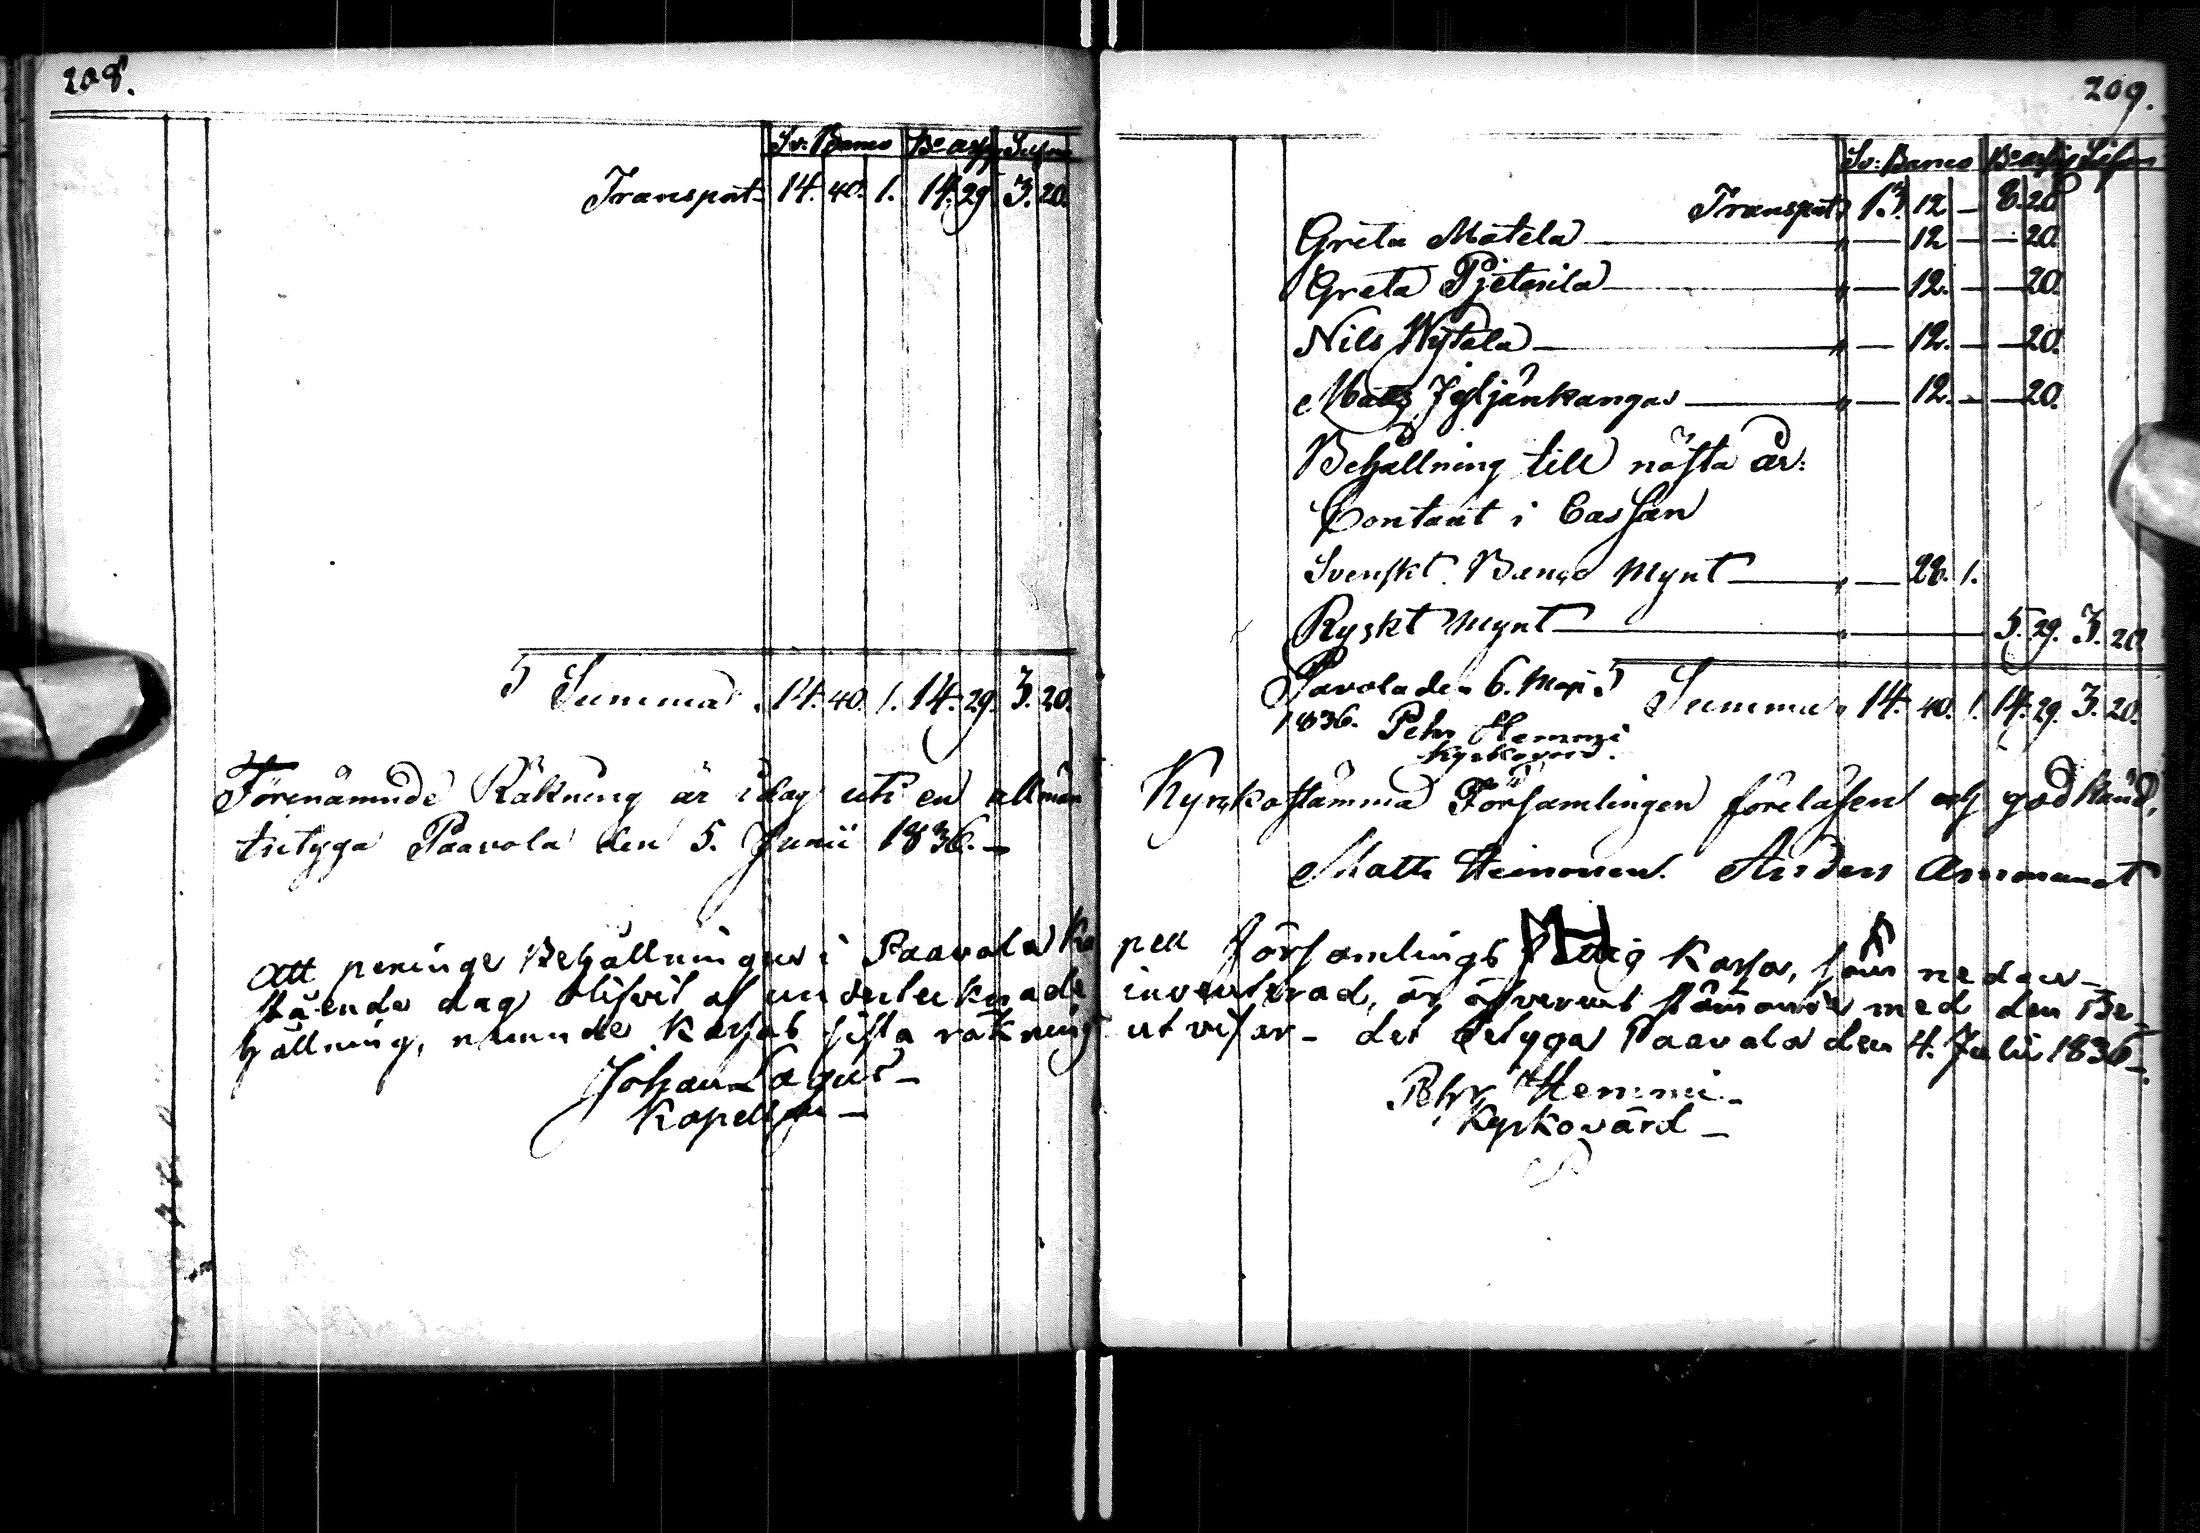 208.
Sv: Banco Bco assig Silfver
Transport 14. 40. 1. 14. 29. 3. 20.
Summa 14. 40. 1. 14. 29. 3. 20.
Förenämnde Räkning är i dag uti en allmän
betyga Paavola den 5. Junii 1836.
Att peninge Behållningen i Paavola Ka
stående dag blifvit af undertecknade
hållning, nämnde Kassas sista räkning
Johan Lagus
Kapellan
209.
Sv: Banco Bco assig Silfver
Transport 13. 12 — 8. 20
Greta Matela — 12 — — 20.
Greta Pjetarila — 12. — — 20.
Nils Wytala — 12. — — 20.
Mats Jyljänkangas — 12. — — 20.
Behållning till nästa år:
Contant i Cassan
Svenskt Banco Mynt — 28. 1.
Ryskt Mynt — 5. 29. 3. 20
Pavola den 6. Maji Summa 14. 40. 1. 14. 29. 3. 20.
1836. Pehr Hemmi
Kyrkovärd.
Kyrkostämma Församlingen föreläsen och godkänd,
Matts Heinonen. Anders
pell församlings Fattig Kassa, som nedan-
inventerad, är öfverens stämmande med den Be-
utvisar - det betygar Paavola den 4. Julii 1836.
Pehr Hemmi
Kyrkovärd